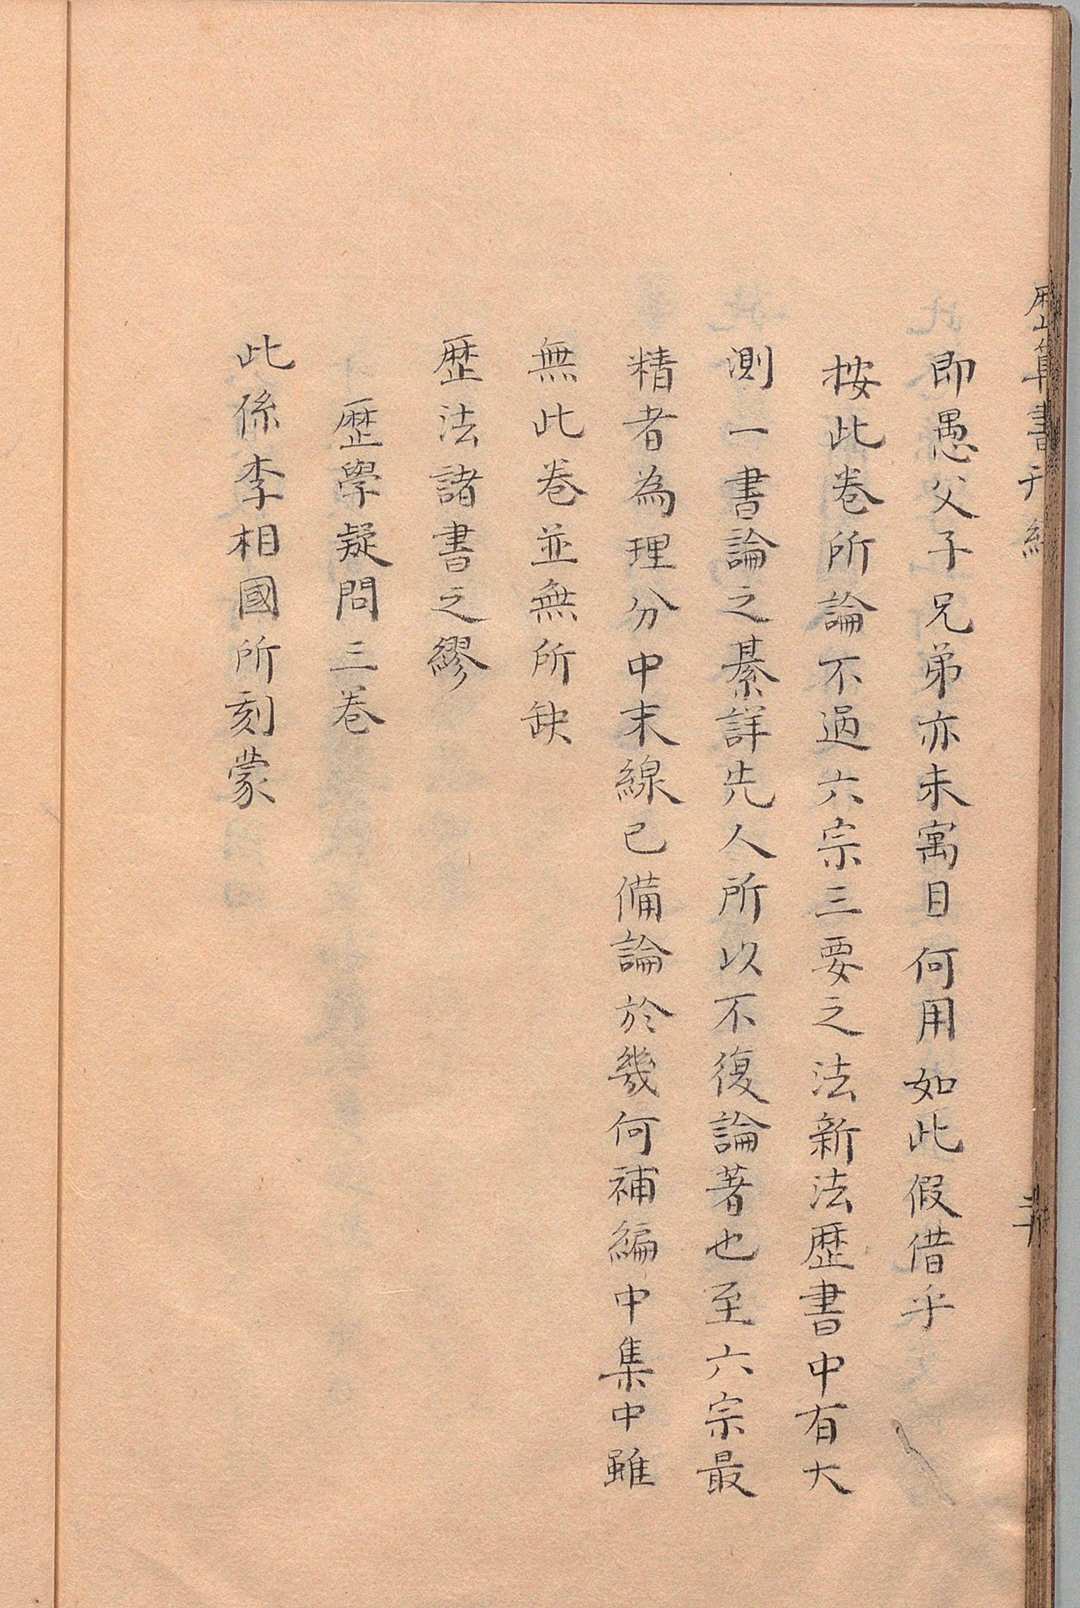 即愚父子兄弟亦未寓目何用如此假借乎
按此卷所論不過六宗三要之法新法歴書中有大
測一書論之綦詳先人所以不復論著也至六宗最
精者為理分中末線已備論於幾何補編中集中雖
無此卷並無所缺
歴法諸書之繆
歴學疑問三卷
此係李相國所刻蒙